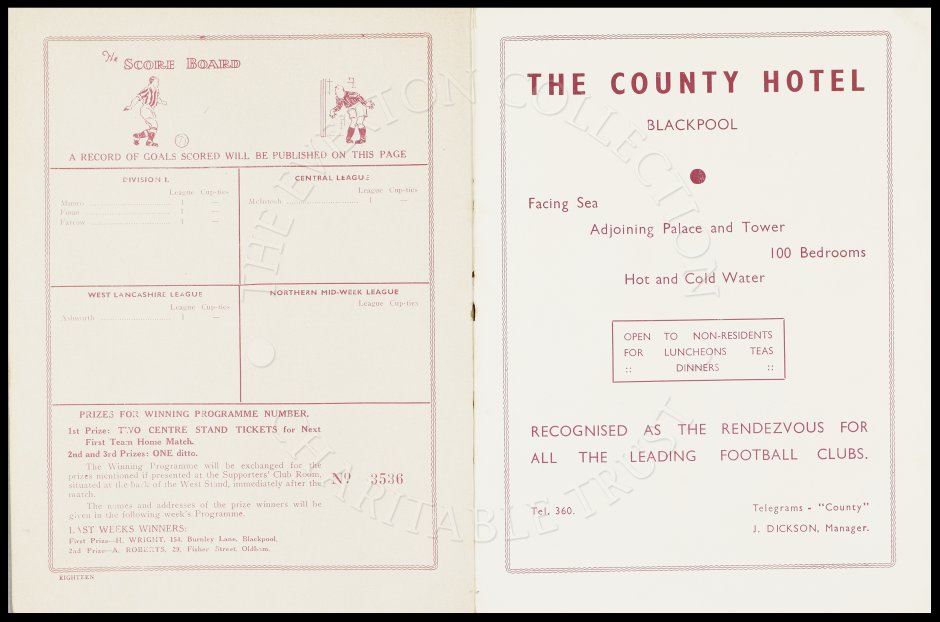 The SCORE BOARD
A RECORD OF GOALS SCORED WILL BE PUBLISHED ON THIS PAGE
DIVISION I.
League Cup-ties
Munro ........................ 1 —
Finan ........................ 1 —
Farrow ........................ 1 —
CENTRAL LEAGUE
League Cup-ties
McIntosh ........................ 1 —
WEST LANCASHIRE LEAGUE
League Cup-ties
Ashworth ........................ 1 —
NORTHERN MID-WEEK LEAGUE
League Cup-ties
PRIZES FOR WINNING PROGRAMME NUMBER.
1st Prize: TWO CENTRE STAND TICKETS for Next
First Team Home Match.
2nd and 3rd Prizes: ONE ditto.
The Winning Programme will be exchanged for the
prizes mentioned if presented at the Supporters' Club Room,
situated at the back of the West Stand, immediately after the
match.
The names and addresses of the prize winners will be
given in the following week's Programme.
No 3536
LAST WEEKS WINNERS:
First Prize—H. WRIGHT, 154, Burnley Lane, Blackpool.
2nd Prize—A. ROBERTS, 29, Fisher Street, Oldham.
EIGHTEEN
THE COUNTY HOTEL
BLACKPOOL
Facing Sea
Adjoining Palace and Tower
100 Bedrooms
Hot and Cold Water
OPEN TO NON-RESIDENTS
FOR LUNCHEONS TEAS
:: DINNERS ::
RECOGNISED AS THE RENDEZVOUS FOR
ALL THE LEADING FOOTBALL CLUBS.
Tel. 360.
Telegrams - "County"
J. DICKSON, Manager.
THE EVERTON COLLECTION
CHARITABLE TRUST